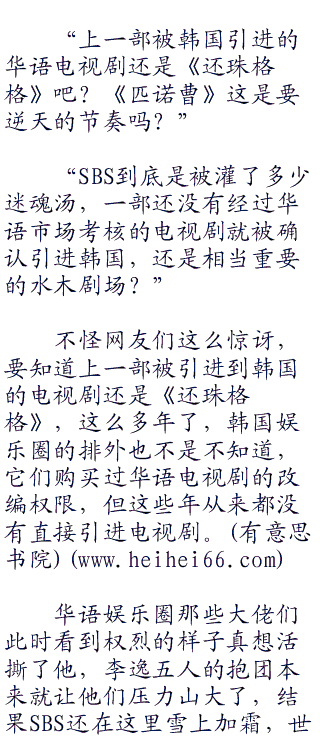 “上一部被韩国引进的
华语电视剧还是《还珠格
格》吧？《匹诺曹》这是要
逆天的节奏吗？”
“SBS到底是被灌了多少
迷魂汤，一部还没有经过华
语市场考核的电视剧就被确
认引进韩国，还是相当重要
的水木剧场？”
不怪网友们这么惊讶，
要知道上一部被引进到韩国
的电视剧还是《还珠格
格》，这么多年了，韩国娱
乐圈的排外也不是不知道，
它们购买过华语电视剧的改
编权限，但这些年从来都没
有直接引进电视剧。(有意思
书院)(www.heihei66.com)
华语娱乐圈那些大佬们
此时看到权烈的样子真想活
撕了他，李逸五人的抱团本
来就让他们压力山大了，结
果SBS还在这里雪上加霜，世